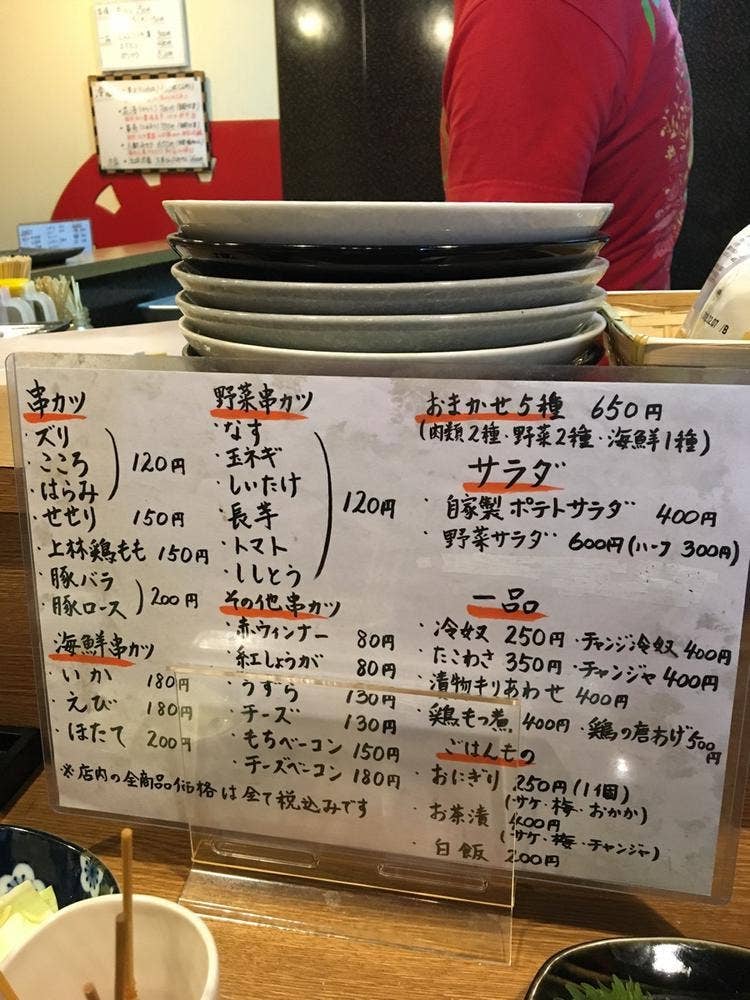 串カツ
・ズリ
・こころ
・はらみ
120円
・せせり 150円
・上林鶏もも 150円
・豚バラ
・豚ロース
200円
海鮮串カツ
・いか 180円
・えび 180円
・ほたて 200円
野菜串カツ
・なす
・玉ネギ
・しいたけ
・長芋
・トマト
・ししとう
120円
その他串カツ
・赤ウィンナー 80円
・紅しょうが 80円
・うずら 130円
・チーズ 130円
・もちベーコン 150円
・チーズベーコン 180円
※店内の全商品価格は全て税込みです
おまかせ5種 650円
(肉類2種・野菜2種・海鮮1種)
サラダ
・自家製ポテトサラダ 400円
・野菜サラダ 600円(ハーフ 300円)
一品
・冷奴 250円 ・チャンジャ冷奴 400円
・たこわさ 350円 ・チャンジャ 400円
・漬物キリあわせ 400円
・鶏もつ煮 400円 ・鶏の唐あげ 500円
ごはんもの
・おにぎり 250円(1個)
(サケ・梅・おかか)
・お茶漬 400円
(サケ・梅・チャンジャ)
・白飯 200円